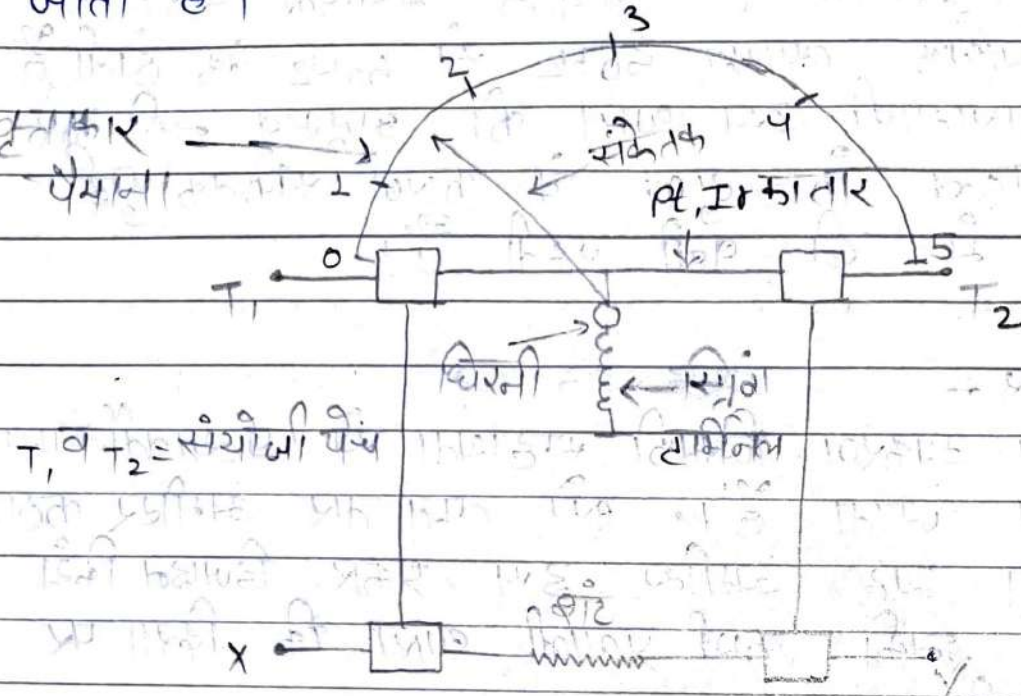 जाता है।
3
2
4
वृत्ताकार
पैमाना
संकेतक
1
Pt, Ir का तार
0
5
T1
T2
घिरनी
स्प्रिंग
T1 व T2 = संयोजी पेंच
टर्मिनल
शंट
X